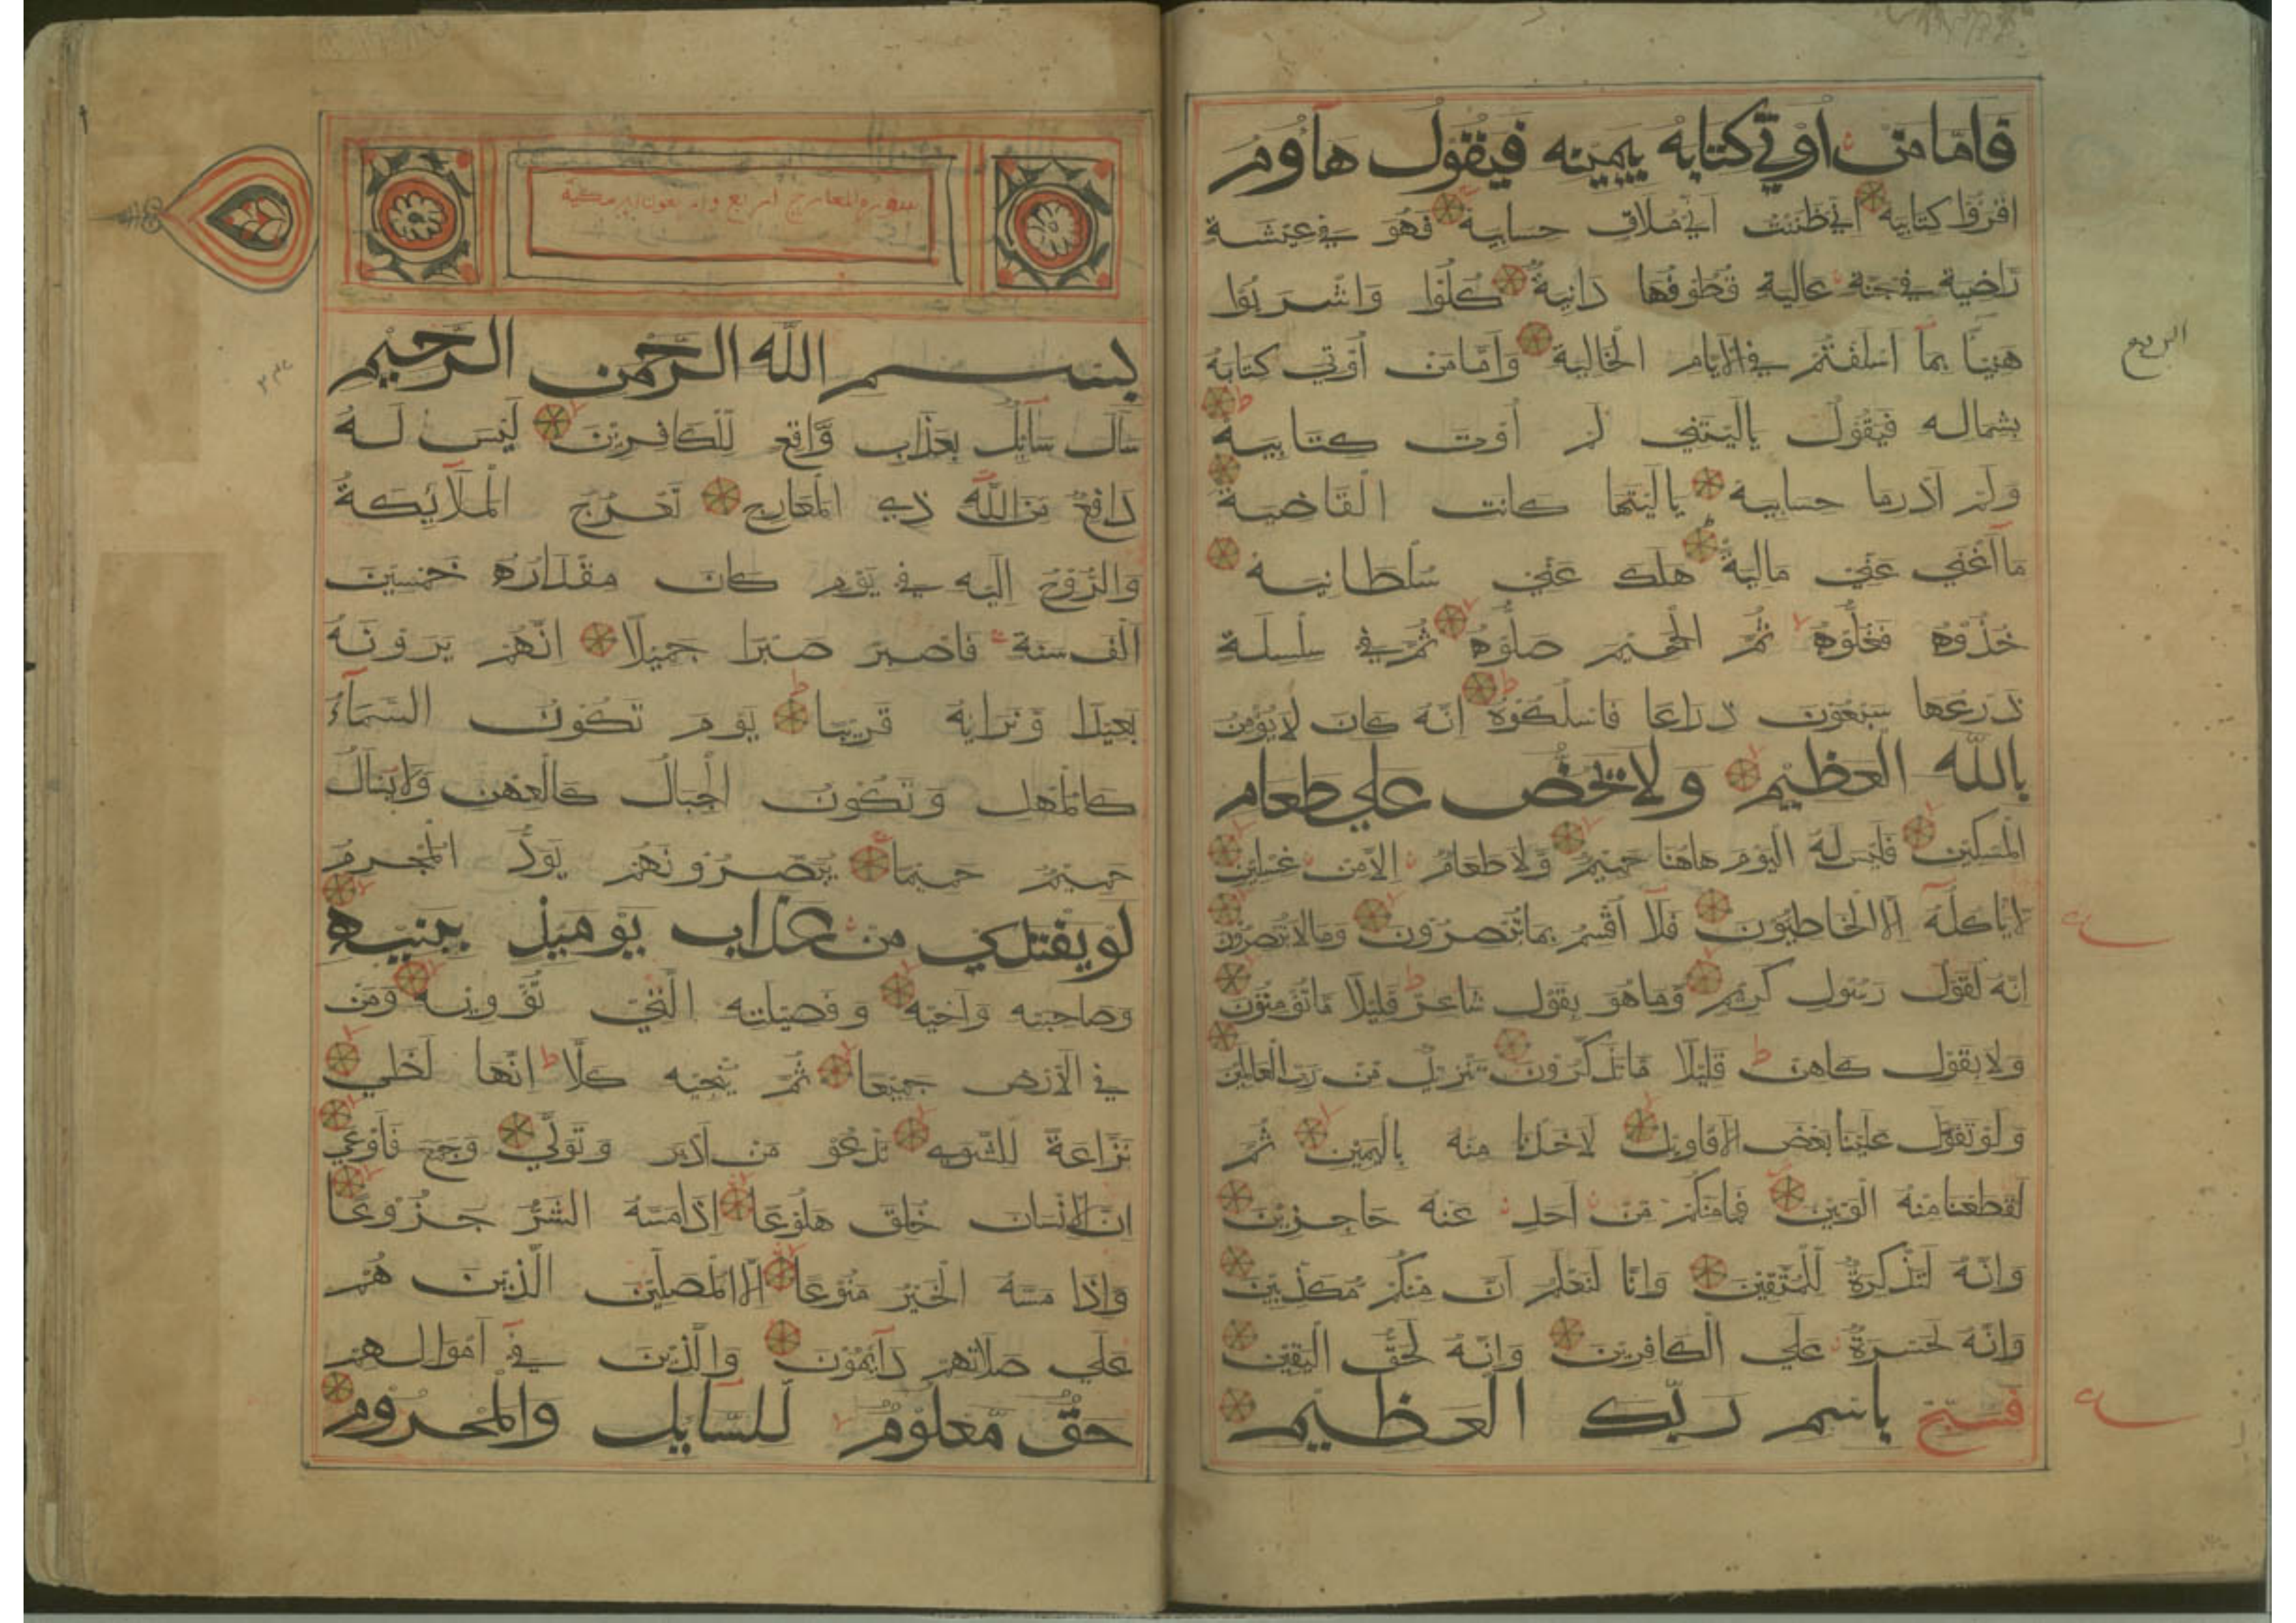 فَامَّا مَنْ أُوْتِيَ كِتَابَهُ بِيَمِيْنِهِ فَيَقُوْلُ هَآؤُمُ
اقْرَؤُا كِتَابِيَهْ اِنِّيْ ظَنَنْتُ اَنِّيْ مُلَاقٍ حِسَابِيَهْ فَهُوَ فِيْ عِيْشَةٍ
رَّاضِيَةٍ فِيْ جَنَّةٍ عَالِيَةٍ قُطُوْفُهَا دَانِيَةٌ كُلُوْا وَاشْرَبُوْا
هَنِيْئًا بِمَآ اَسْلَفْتُمْ فِي الْاَيَّامِ الْخَالِيَةِ وَاَمَّا مَنْ اُوْتِيَ كِتَابَهُ
بِشِمَالِهِ فَيَقُوْلُ يَالَيْتَنِيْ لَمْ اُوْتَ كِتَابِيَهْ
وَلَمْ اَدْرِ مَا حِسَابِيَهْ يَالَيْتَهَا كَانَتِ الْقَاضِيَةَ
مَآ اَغْنَى عَنِّيْ مَالِيَهْ هَلَكَ عَنِّيْ سُلْطَانِيَهْ
خُذُوْهُ فَغُلُّوْهُ ثُمَّ الْجَحِيْمَ صَلُّوْهُ ثُمَّ فِيْ سِلْسِلَةٍ
ذَرْعُهَا سَبْعُوْنَ ذِرَاعًا فَاسْلُكُوْهُ اِنَّهُ كَانَ لَا يُؤْمِنُ
بِاللّٰهِ الْعَظِيْمِ وَلَا يَحُضُّ عَلَى طَعَامِ
الْمِسْكِيْنِ فَلَيْسَ لَهُ الْيَوْمَ هَاهُنَا حَمِيْمٌ وَّلَا طَعَامٌ اِلَّا مِنْ غِسْلِيْنٍ
لَا يَاْكُلُهُ اِلَّا الْخَاطِئُوْنَ فَلَآ اُقْسِمُ بِمَا تُبْصِرُوْنَ وَمَا لَا تُبْصِرُوْنَ
اِنَّهُ لَقَوْلُ رَسُوْلٍ كَرِيْمٍ وَّمَا هُوَ بِقَوْلِ شَاعِرٍ قَلِيْلًا مَّا تُؤْمِنُوْنَ
وَلَا بِقَوْلِ كَاهِنٍ قَلِيْلًا مَّا تَذَكَّرُوْنَ تَنْزِيْلٌ مِّنْ رَبِّ الْعَالَمِيْنَ
وَلَوْ تَقَوَّلَ عَلَيْنَا بَعْضَ الْاَقَاوِيْلِ لَاَخَذْنَا مِنْهُ بِالْيَمِيْنِ ثُمَّ
لَقَطَعْنَا مِنْهُ الْوَتِيْنَ فَمَا مِنْكُمْ مِّنْ اَحَدٍ عَنْهُ حَاجِزِيْنَ
وَاِنَّهُ لَتَذْكِرَةٌ لِّلْمُتَّقِيْنَ وَاِنَّا لَنَعْلَمُ اَنَّ مِنْكُمْ مُّكَذِّبِيْنَ
وَاِنَّهُ لَحَسْرَةٌ عَلَى الْكَافِرِيْنَ وَاِنَّهُ لَحَقُّ الْيَقِيْنِ
فَسَبِّحْ بِاسْمِ رَبِّكَ الْعَظِيْمِ
الربع
سورة المعارج اربع واربعون اية مكية
بِسْمِ اللّٰهِ الرَّحْمٰنِ الرَّحِيْمِ
سَاَلَ سَآئِلٌ بِعَذَابٍ وَّاقِعٍ لِّلْكَافِرِيْنَ لَيْسَ لَهُ
دَافِعٌ مِّنَ اللّٰهِ ذِي الْمَعَارِجِ تَعْرُجُ الْمَلَآئِكَةُ
وَالرُّوْحُ اِلَيْهِ فِيْ يَوْمٍ كَانَ مِقْدَارُهُ خَمْسِيْنَ
اَلْفَ سَنَةٍ فَاصْبِرْ صَبْرًا جَمِيْلًا اِنَّهُمْ يَرَوْنَهُ
بَعِيْدًا وَّنَرَاهُ قَرِيْبًا يَوْمَ تَكُوْنُ السَّمَآءُ
كَالْمُهْلِ وَتَكُوْنُ الْجِبَالُ كَالْعِهْنِ وَلَا يَسْاَلُ
حَمِيْمٌ حَمِيْمًا يُبَصَّرُوْنَهُمْ يَوَدُّ الْمُجْرِمُ
لَوْ يَفْتَدِيْ مِنْ عَذَابِ يَوْمِئِذٍ بِبَنِيْهِ
وَصَاحِبَتِهِ وَاَخِيْهِ وَفَصِيْلَتِهِ الَّتِيْ تُؤْوِيْهِ وَمَنْ
فِي الْاَرْضِ جَمِيْعًا ثُمَّ يُنْجِيْهِ كَلَّا اِنَّهَا لَظَى
نَزَّاعَةً لِّلشَّوَى تَدْعُوْ مَنْ اَدْبَرَ وَتَوَلَّى وَجَمَعَ فَاَوْعَى
اِنَّ الْاِنْسَانَ خُلِقَ هَلُوْعًا اِذَا مَسَّهُ الشَّرُّ جَزُوْعًا
وَاِذَا مَسَّهُ الْخَيْرُ مَنُوْعًا اِلَّا الْمُصَلِّيْنَ الَّذِيْنَ هُمْ
عَلَى صَلَاتِهِمْ دَآئِمُوْنَ وَالَّذِيْنَ فِيْ اَمْوَالِهِمْ
حَقٌّ مَّعْلُوْمٌ لِّلسَّآئِلِ وَالْمَحْرُوْمِ